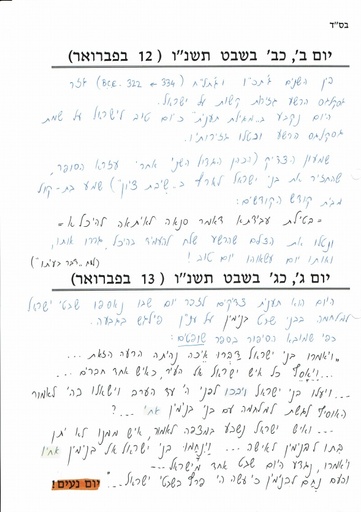 בס"ד
יום ב', כב' בשבט תשנ"ו ( 12 בפברואר)
בין השנים ג'תכ"ו וג'תל"ח (334 – 322 .B.C.E) גזר
גסקלגס הרשע גזירות קשות על ישראל.
היום נקבע ב"מגילת תענית" כיום טוב לישראל על שמת
גסקלגס הרשע ובטלו גזרותיו.
שמעון הצדיק (הכהן הגדול השני אחרי עזרא הסופר,
שהחזיר את בני ישראל לארץ ב"שיבת ציון") שמע בת-קול
מבית קודש הקודשים:
"בטילת עבידתא דאמר סנאה לאיתאה להיכלא"
ונטלו את הצלם שהרשע שלח להעמיד בהיכל, גררו אותו,
ואותו יום עשאוהו יום טוב!
יום ג', כג' בשבט תשנ"ו ( 13 בפברואר)
היום הוא תענית צדיקים לזכר יום שבו נאספו שבטי ישראל
למלחמה בבני שבט בנימין על ענין פילגש בגבעה.
כפי שמובא הסיפור בספר שופטים:
"ויאמרו בני ישראל דברו איכה נהיתה הרעה הזאת...
...ויאסף כל איש ישראל אל העיר, כאיש אחד חברים...
...ויעלו בני ישראל ויבכו לפני ה' עד הערב וישאלו בה' לאמור
האוסיף לגשת למלחמה עם בני בנימין אחי ...?
...ואיש ישראל נשבע במצפה לאמר, איש ממנו לא יתן
בתו לבנימין לאישה... וינחמו בני ישראל אל בנימין אחיו
ויאמרו, נגדע היום שבט אחד מישראל...
והעם נחם לבנימין כי עשה ה' פרץ בשבטי ישראל..."
יום נעים!